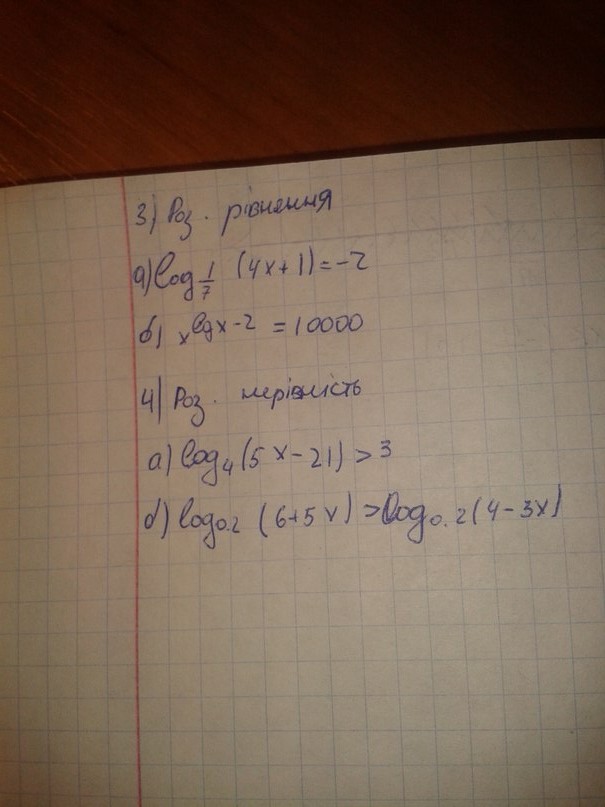 3) Роз. рівнення
а) log 1/7 (4x+1)=-2
б) x^lgx-2 = 10000
4) Роз. нерівність
а) log₄(5x-21)>3
б) log₀.₂ (6+5x)>log₀.₂(4-3x)